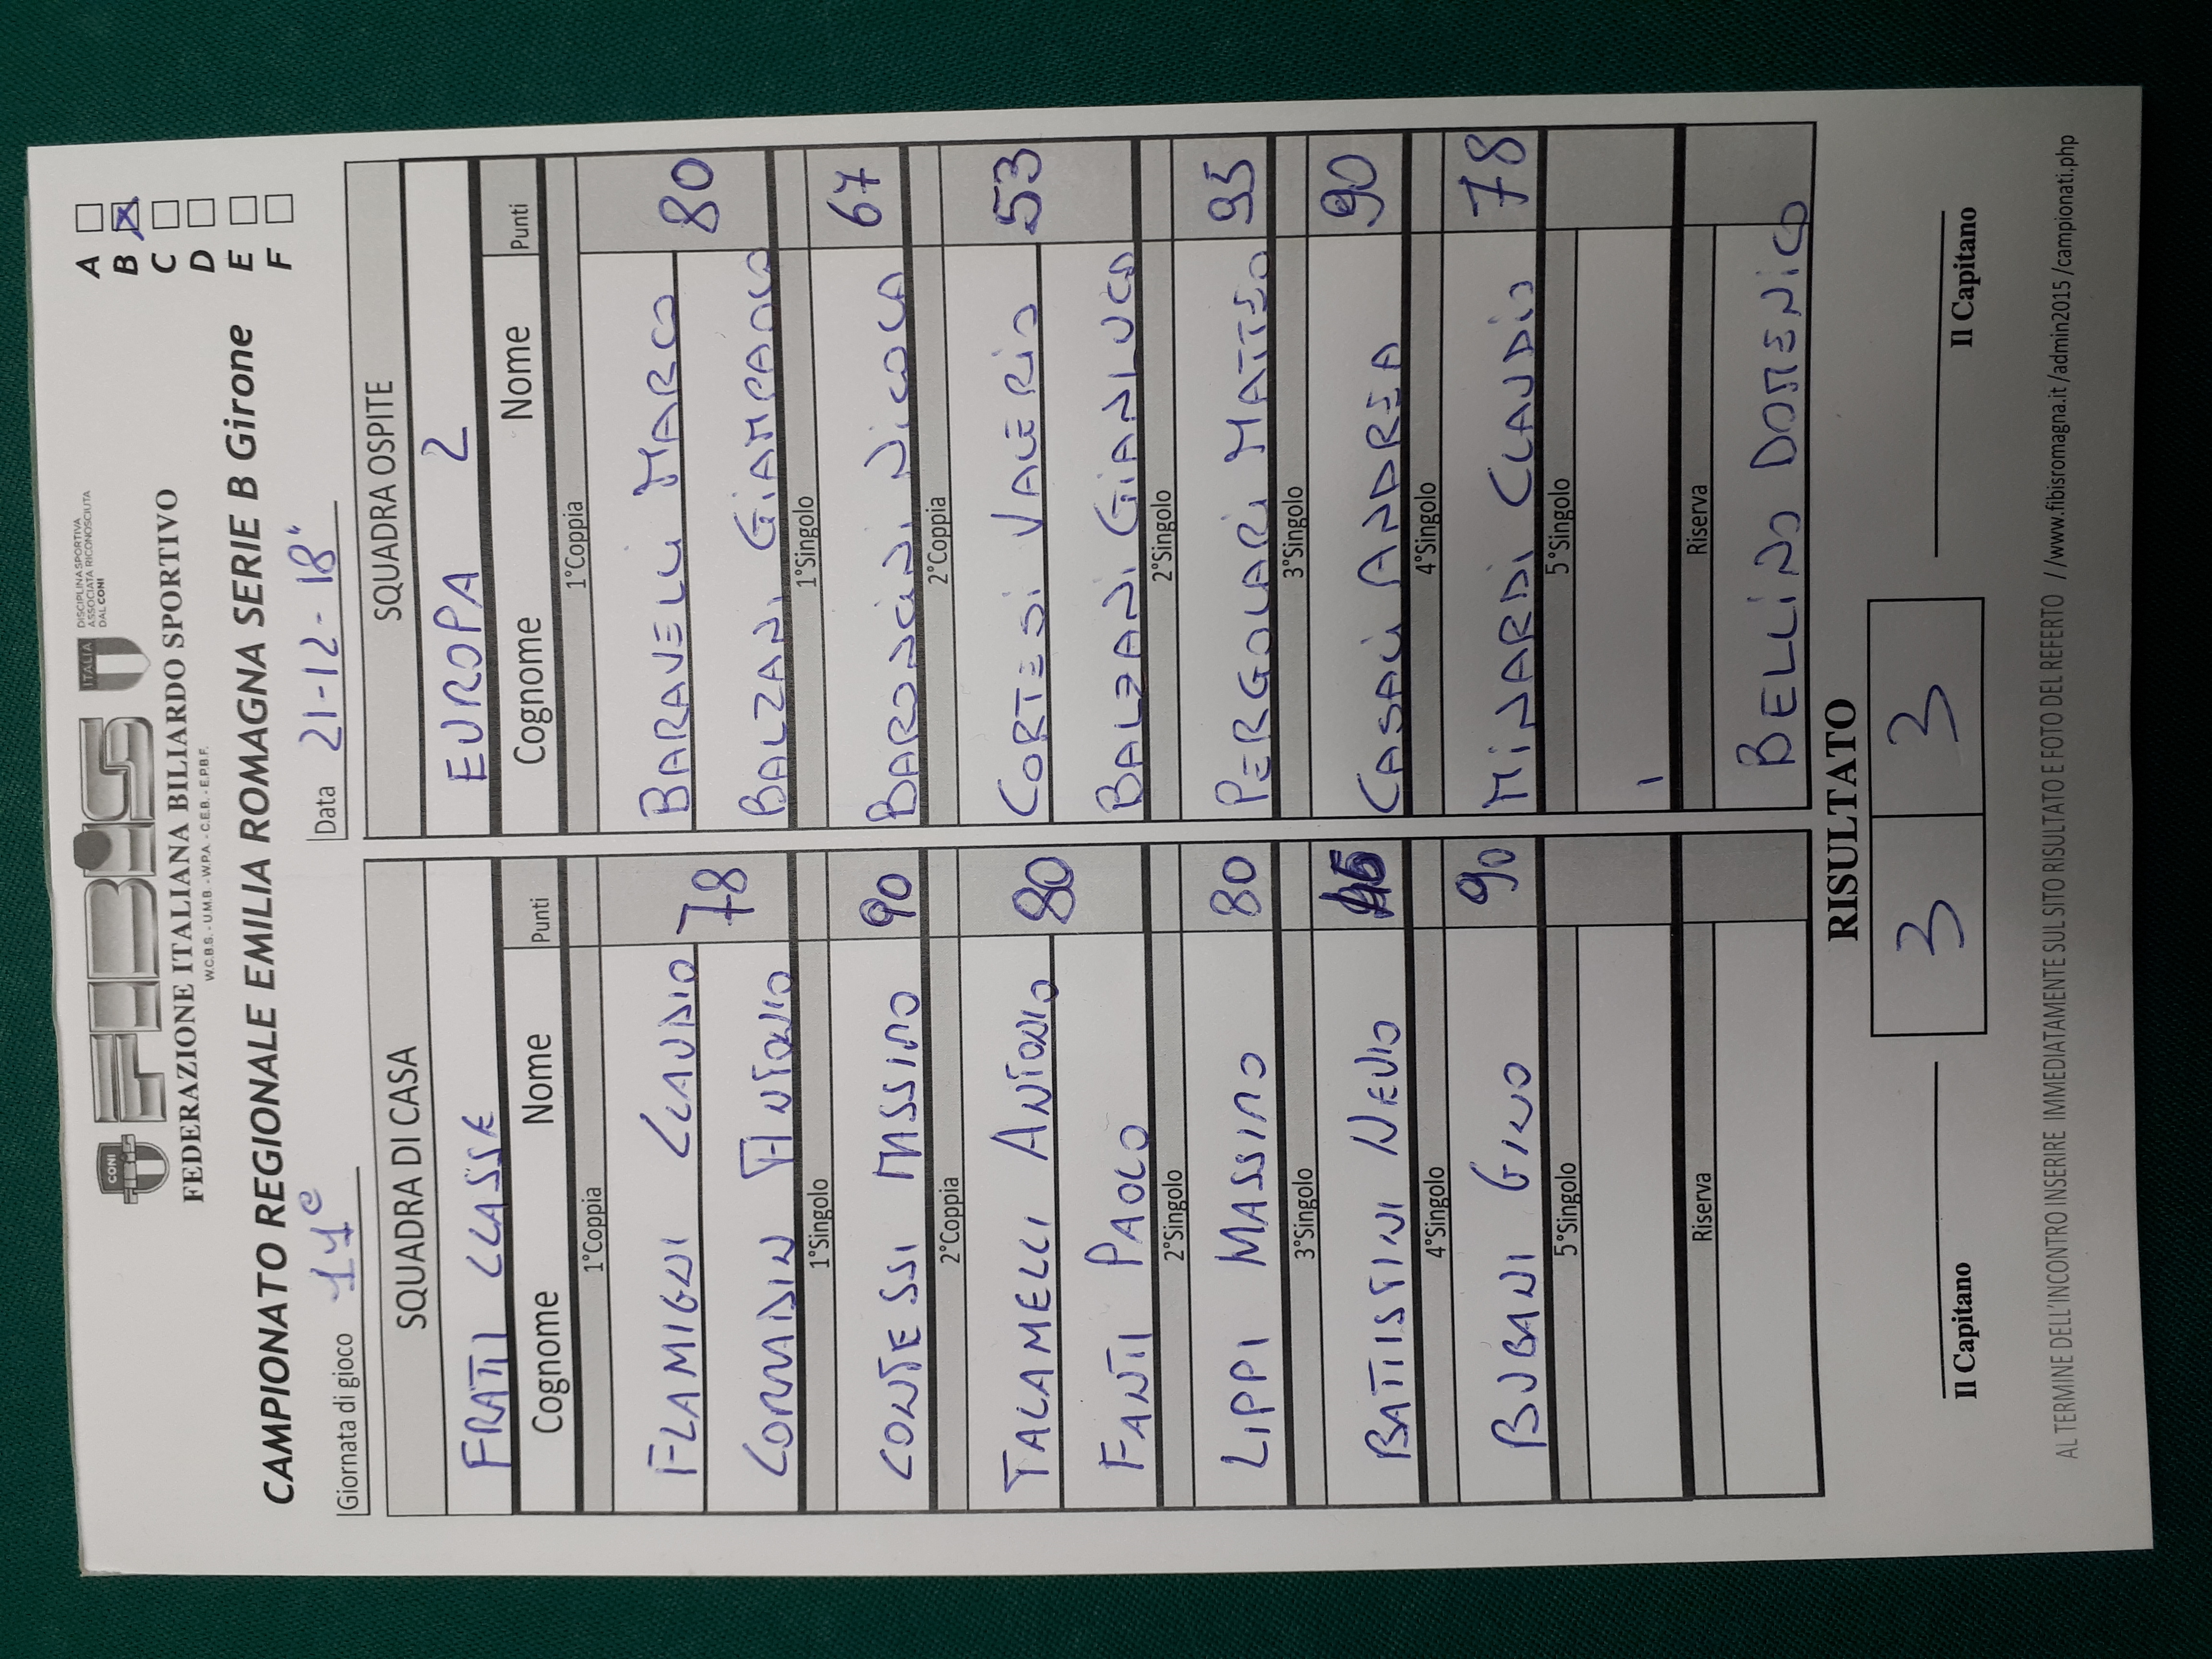 CONI
FEBIS
ITALIA
DISCIPLINA SPORTIVA
ASSOCIATA RICONOSCIUTA
DAL CONI
FEDERAZIONE ITALIANA BILIARDO SPORTIVO
W.C.B.S. - U.M.B. - W.P.A. - C.E.B. - E.P.B.F.
CAMPIONATO REGIONALE EMILIA ROMAGNA SERIE B Girone
A
B X
C
D
E
F
Giornata di gioco 11e
Data 21-12-18"
SQUADRA DI CASA
FRATTI CLASSE
Cognome Nome Punti
1°Coppia
FLAMIGNI CLAUDIO
CORRADIN ANTONIO
78
1°Singolo
CONTESSI MASSIMO 90
2°Coppia
TALAMELLI ANTONIO 80
FANTI PAOLO
2°Singolo
LIPPI MASSIMO 80
3°Singolo
BATTISTINI NEVIO
4°Singolo
BUBANI GINO 90
5°Singolo
Riserva
SQUADRA OSPITE
EUROPA 2
Cognome Nome Punti
1°Coppia
BARAVELLI MARCO 80
BALZANI GIAMPAOLO
1°Singolo
BARONCINI NICOLA 67
2°Coppia
CORTESI VALERIO 53
BALZANI GIANLUCA
2°Singolo
PERGOLARI MATTEO 95
3°Singolo
CASALI ANDREA 90
4°Singolo
MINARDI CLAUDIO 78
5°Singolo
Riserva
BELLINO DOMENICO
RISULTATO
3 3
Il Capitano Il Capitano
AL TERMINE DELL'INCONTRO INSERIRE IMMEDIATAMENTE SUL SITO RISULTATO E FOTO DEL REFERTO //www.fibisromagna.it /admin2015 /campionati.php